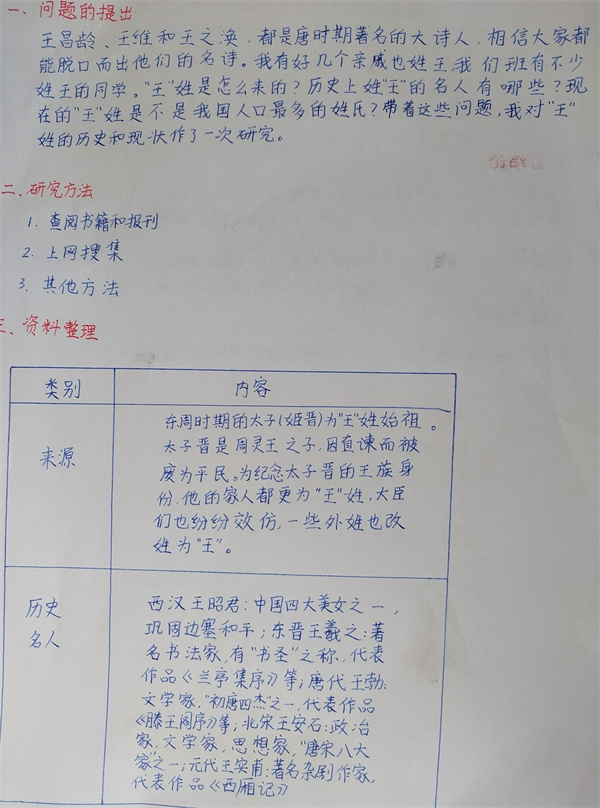 一、问题的提出
王昌龄、王维和王之涣，都是唐时期著名的大诗人，相信大家都
能脱口而出他们的名诗。我有好几个亲戚也姓王，我们班有不少
姓王的同学。"王"姓是怎么来的？历史上姓"王"的名人有哪些？现
在的"王"姓是不是我国人口最多的姓氏？带着这些问题，我对"王"
姓的历史和现状作了一次研究。
二、研究方法
1. 查阅书籍和报刊
2. 上网搜集
3. 其他方法
三、资料整理
类别 内容
来源
东周时期的太子(姬晋)为"王"姓始祖。
太子晋是周灵王之子，因直谏而被
废为平民。为纪念太子晋的王族身
份，他的家人都更为"王"姓，大臣
们也纷纷效仿，一些外姓也改
姓为"王"。
历史
名人
西汉王昭君：中国四大美女之一，
巩固边塞和平；东晋王羲之：著
名书法家，有"书圣"之称，代表
作品《兰亭集序》等；唐代王勃：
文学家，"初唐四杰"之一，代表作品
《滕王阁序》等；北宋王安石：政治
家，文学家，思想家，"唐宋八大
家"之一；元代王实甫：著名杂剧作家，
代表作品《西厢记》